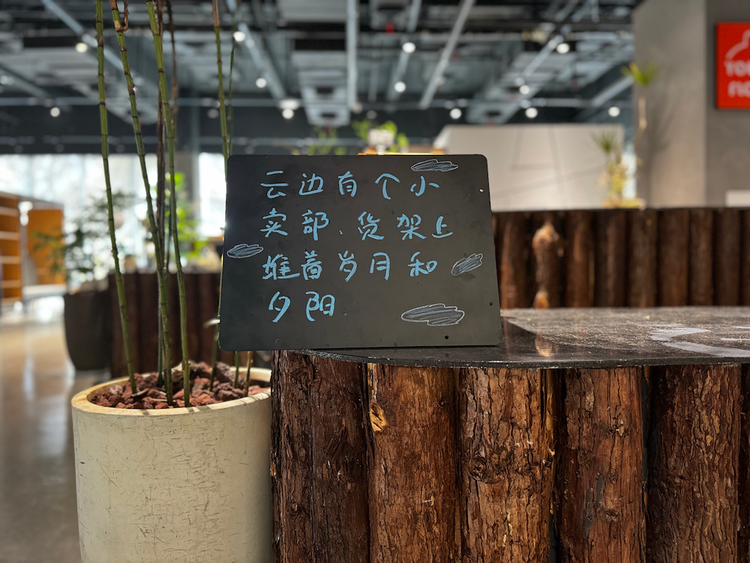 云边有个小
卖部、货架上
堆着岁月和
夕阳